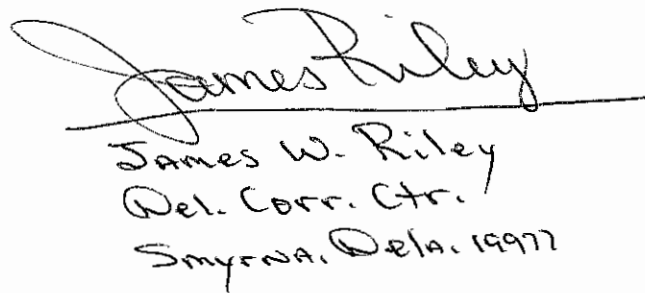 James Riley
James W. Riley
Del. Corr. Ctr.
Smyrna, Dela. 19977